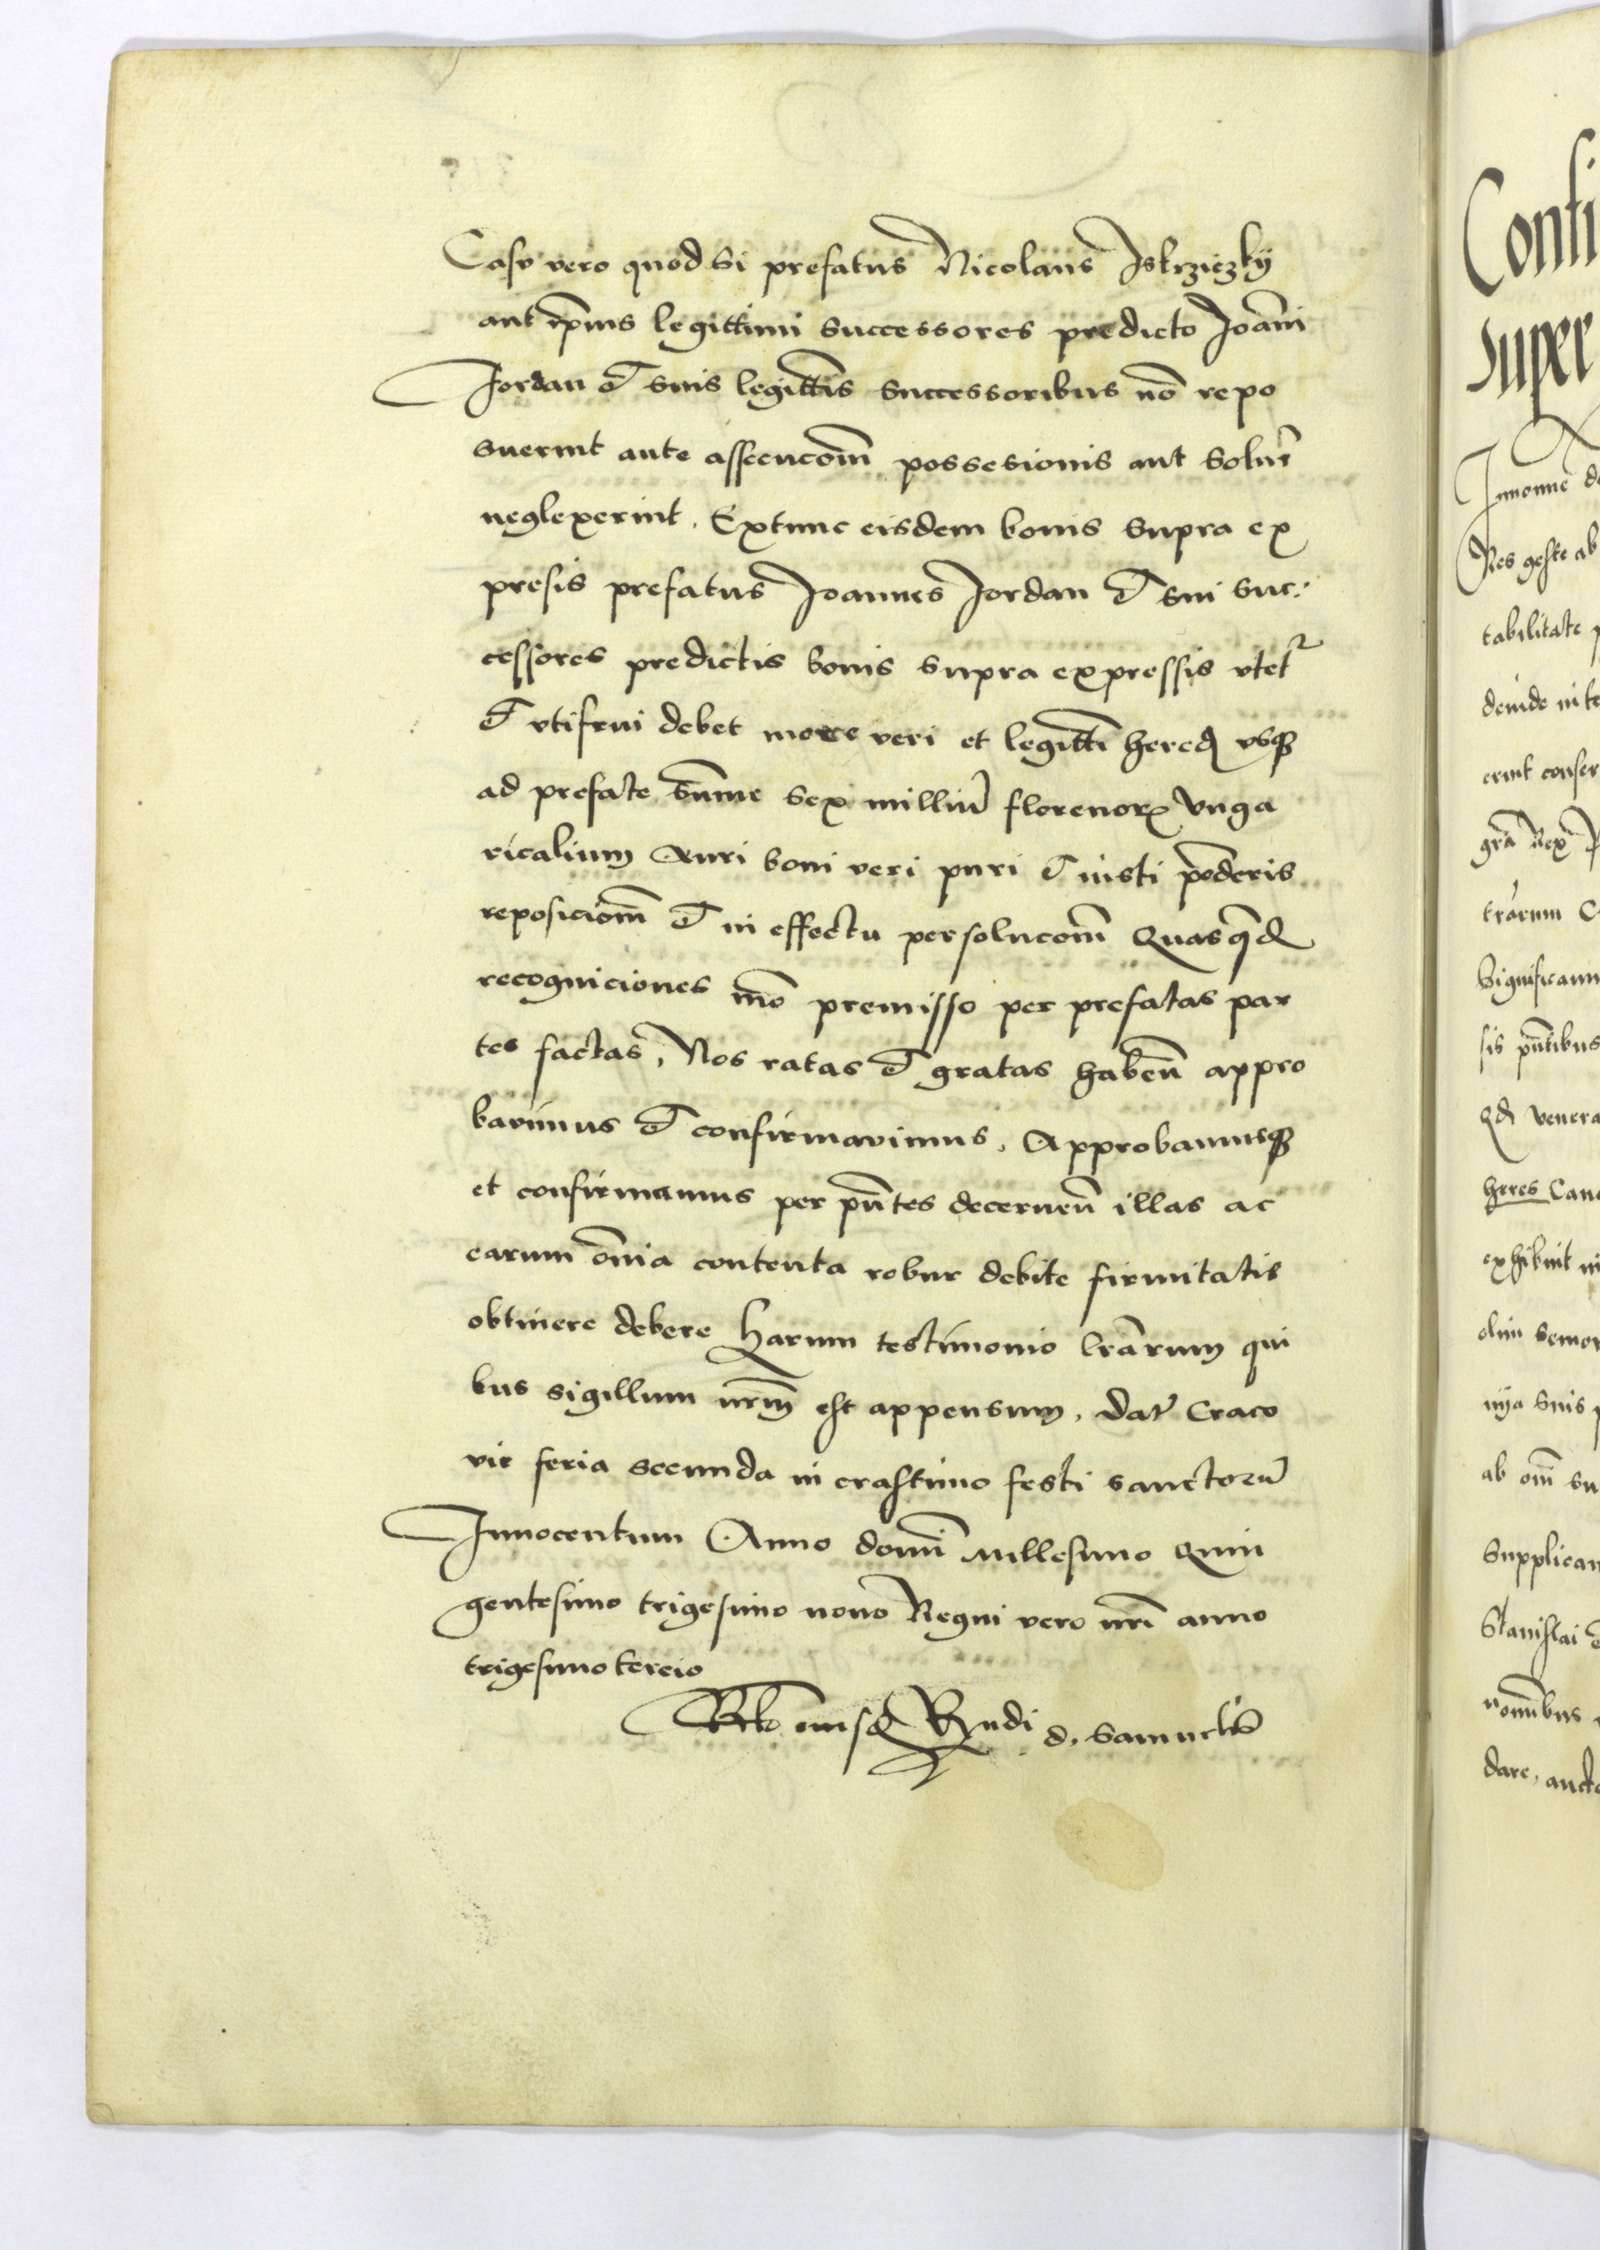 Casu vero quod si prefatus Nicolaus Iskrziczky
aut ip̄ius legittimi successores predicto Ioān̄i
Iordan et suis legitt̄is successoribus nō repo
suerint ante assecucōm possesionis aut solūe
neglexerint. Extunc eisdem bonis supra ex
presis prefatus Ioannes Iordan et sui suc
cessores predictis bonis supra expressis vtet̄r
et vtifrui debet more veri et legitt̄i hered vsq3
ad prefate sūme sex milliū florenor Vnga
ricalium Auri boni veri puri et iusti pōderis
reposiciōm et in effectu persolucōm Quasq̄d
recogniciones mō premisso per prefatas par
tes factas, Nos ratas et gratas habeñ appro
bavimus et confirmavimus, Approbamusq3
et confirmamus per pñtes decerneñ illas ac
earum om̄ia contenta robur debite firmitatis
obtinere debere Harum testimonio lrārum qui
bus sigillum nrm̄ est appensum, Dat̄ Craco
vie feria secunda in crastino festi sanctorū
Innocentum Anno domi͞ Millesimo Quin
gentesimo trigesimo nono Regni vero nr̄i anno
trigesimo tercio
Rlo eiusd Rndi d. Samuelis
Confi
super
In nomine do
Res geste ab
tabilitate p
deinde inte
erint conser
grā Rex P
trārum C
Significam
sis pñtibus
Qd venera
heres Can
exhibuit in
olim semor
nija suis p
ab om̄i su
Supplican
Stanislai e
nominibus
dare, aucto